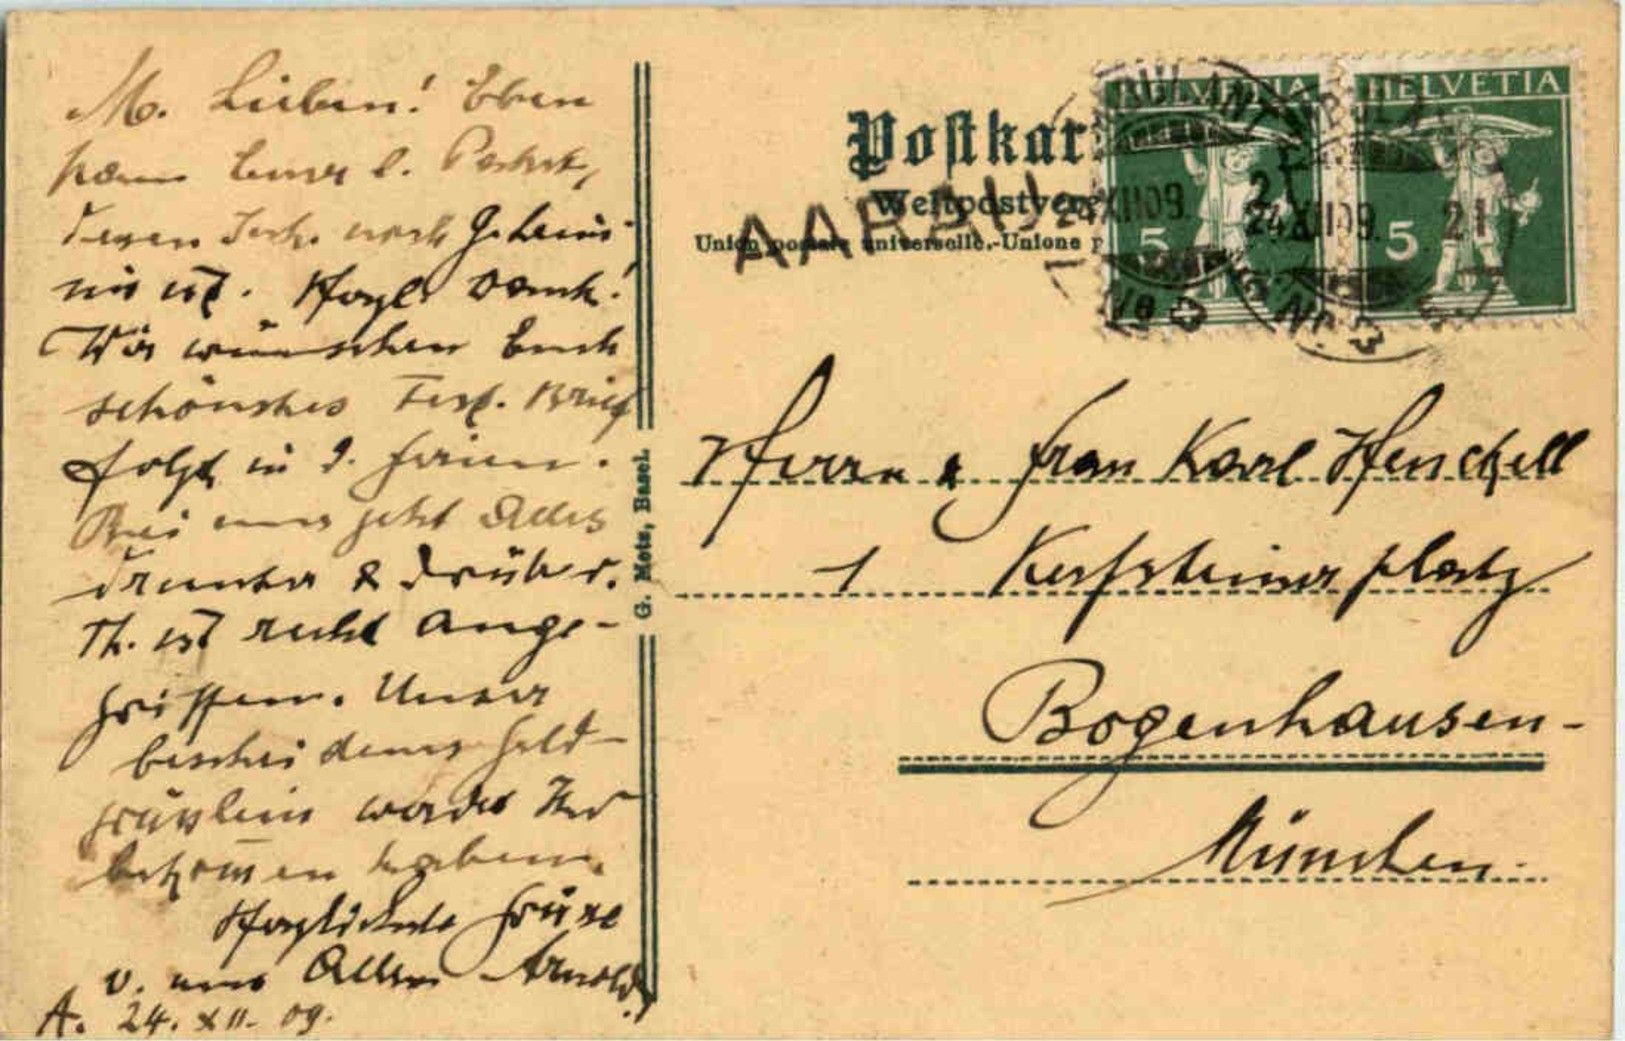 M. Lieben! Eben
kam Euer l. Packet,
dessen Inh. noch Geheim-
nis ist. Herzl. Dank!
Wir wünschen Euch
schönstes Fest. Brief
folgt in d. Ferien.
Bei uns jetzt Alles
drunter & drüber.
Th. ist recht ange-
griffen. Unser
bescheidenes Geld-
werdet Ihr
bekommen haben.
Herzlichste Grüsse
v. uns Allen Arnold
A. 24. XII. 09.
G. Metz, Basel.
Postkar
Weltpostvere
Union postale universelle.-Unione p
AARAU
HELVETIA
5
HELVETIA
5
AMBULANT
24 XII 09. 21
24 XII 09. 21
Herrn & Frau Karl Henckell
1 Kufsteinerplatz
Bogenhausen-
München.